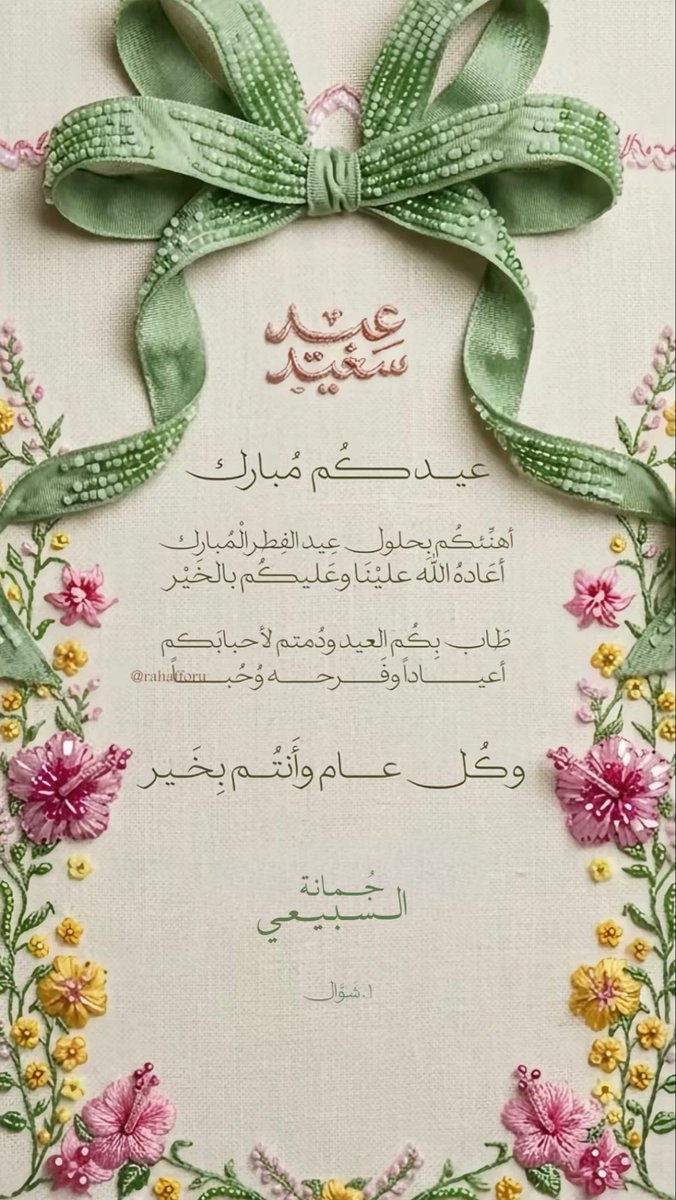 عيد
سَعيْد
عيدكُم مُبارك
أهنِّئكُم بِحلول عِيد الفِطر الْمُبارك
أعَادهُ اللّه عليْنَا وعَليكُم بالخَيْر
طَاب بِكُم العيد ودُمتم لأحبابَكم
أعياداً وفَرحه وُحُباً
@rahafforu
وكُل عام وأَنتُم بِخَير
جُمانة
السبيعي
١. شَوَّال